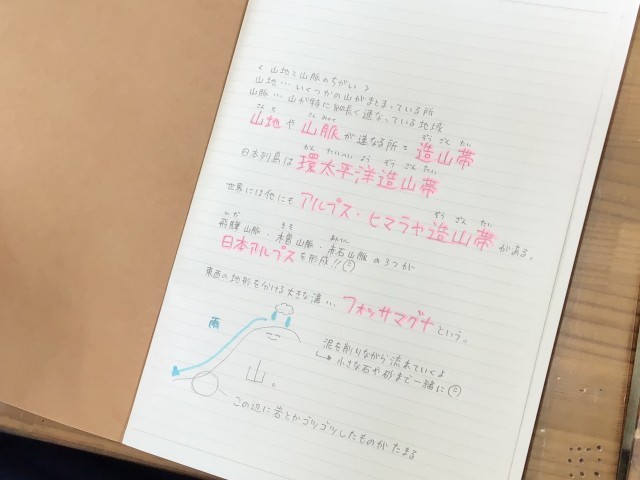 <山地と山脈のちがい>
山地…いくつかの山がまとまっている所
山脈…山が特に細長く連なっている地域
さん ち さん みゃく ぞう ざん たい
山地や山脈が連なる所=造山帯
かん たいへい よう ぞう ざん たい
日本列島は環太平洋造山帯
ぞう ざん たい
世界には他にもアルプス・ヒマラヤ造山帯がある。
ひだ きそ あかいし
飛騨山脈・木曽山脈・赤石山脈の3つが
日本アルプスを形成!!
東西の地形を分ける大きな溝…フォッサマグナという。
雨
泥を削りながら流れていくよ
小さな石や砂まで一緒に
山。
この辺に岩とかゴツゴツしたものがたまる